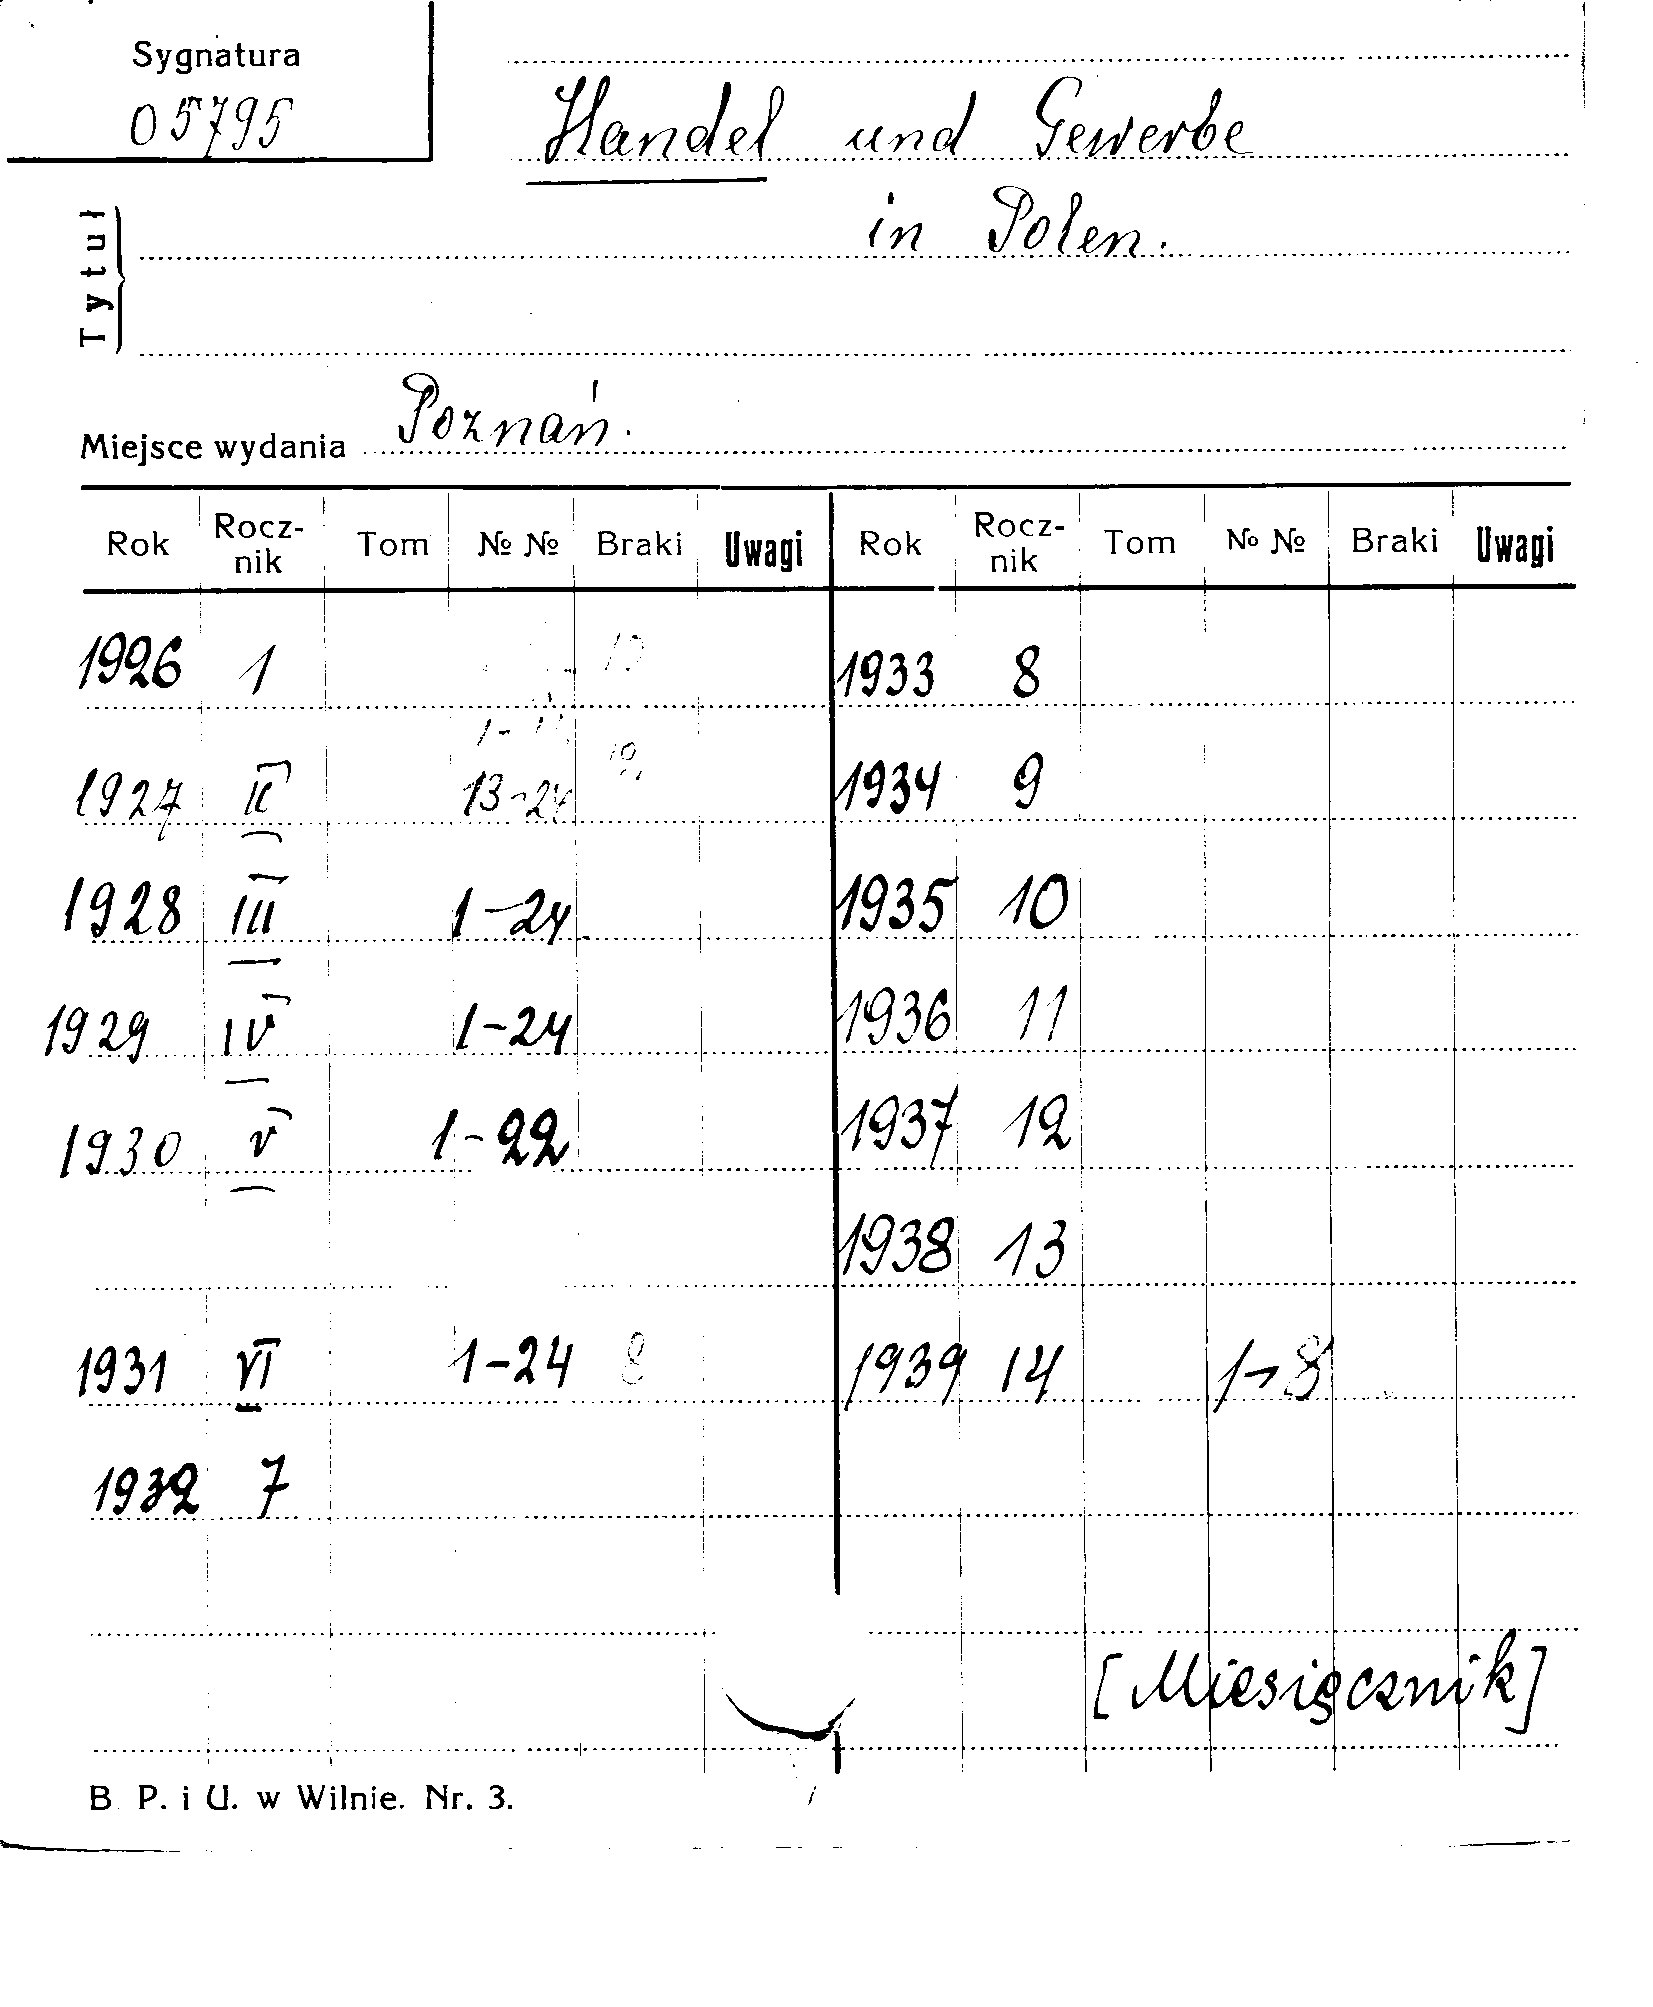 Sygnatura
05795
Handel und Gewerbe
in Polen.
Tytuł
Miejsce wydania Poznań.
Rok Rocz-nik Tom № № Braki Uwagi Rok Rocz-nik Tom № № Braki Uwagi
1926 1 1933 8
1927 II 13-24 1934 9
1928 III 1-24 1935 10
1929 IV 1-24 1936 11
1930 V 1-22 1937 12
1938 13
1931 VI 1-24 8 1939 14 1-8
1932 7
[Miesięcznik]
B. P. i U. w Wilnie. Nr. 3.